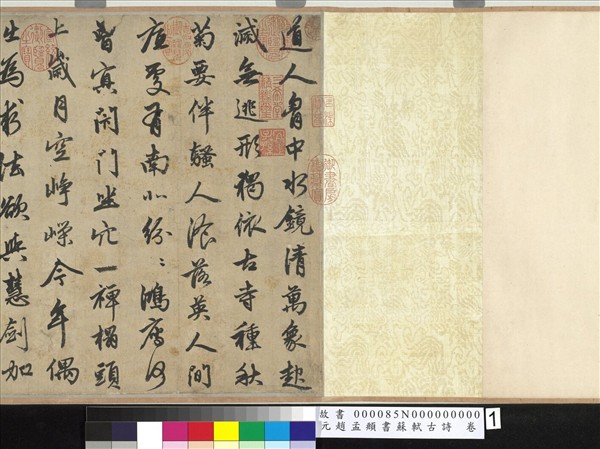 道人胷中水鏡清萬象起
滅無逃形獨依古寺種秋
菊要伴騷人飡落英人間
底處有南北紛〻鴻雁何
曾冥閉門坐穴一禪榻頭
上歲月空崢嶸今年偶
出為求法欲與慧劍加
故書 000085N000000000
元趙孟頫書蘇軾古詩 卷
1